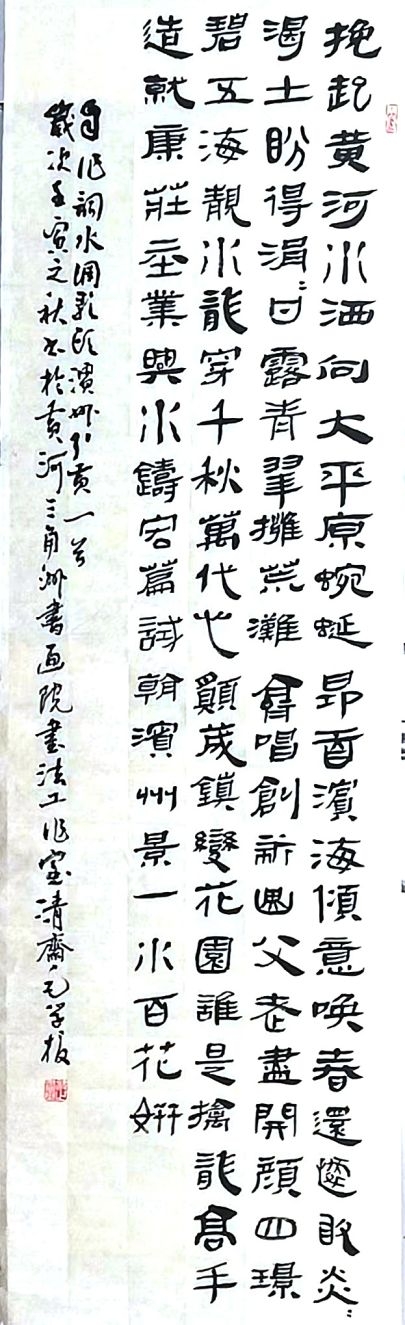 挽起黄河水洒向大平原蜿蜒昂首濱海傾意喚春還炎〻
渴土盼得涓〻甘露青翠擁荒灘唱創新曲父老盡開顔四環
碧五海靚水龍穿千秋萬代心願城鎮變花園誰是擒龍高手
造就康莊丕業興水鑄宏篇試看濱州景一水百花妍
自作詞水调歌頭濱州引黄一首
歲次壬寅之秋书於黄河三角洲書画院書法工作室清齋毛学校